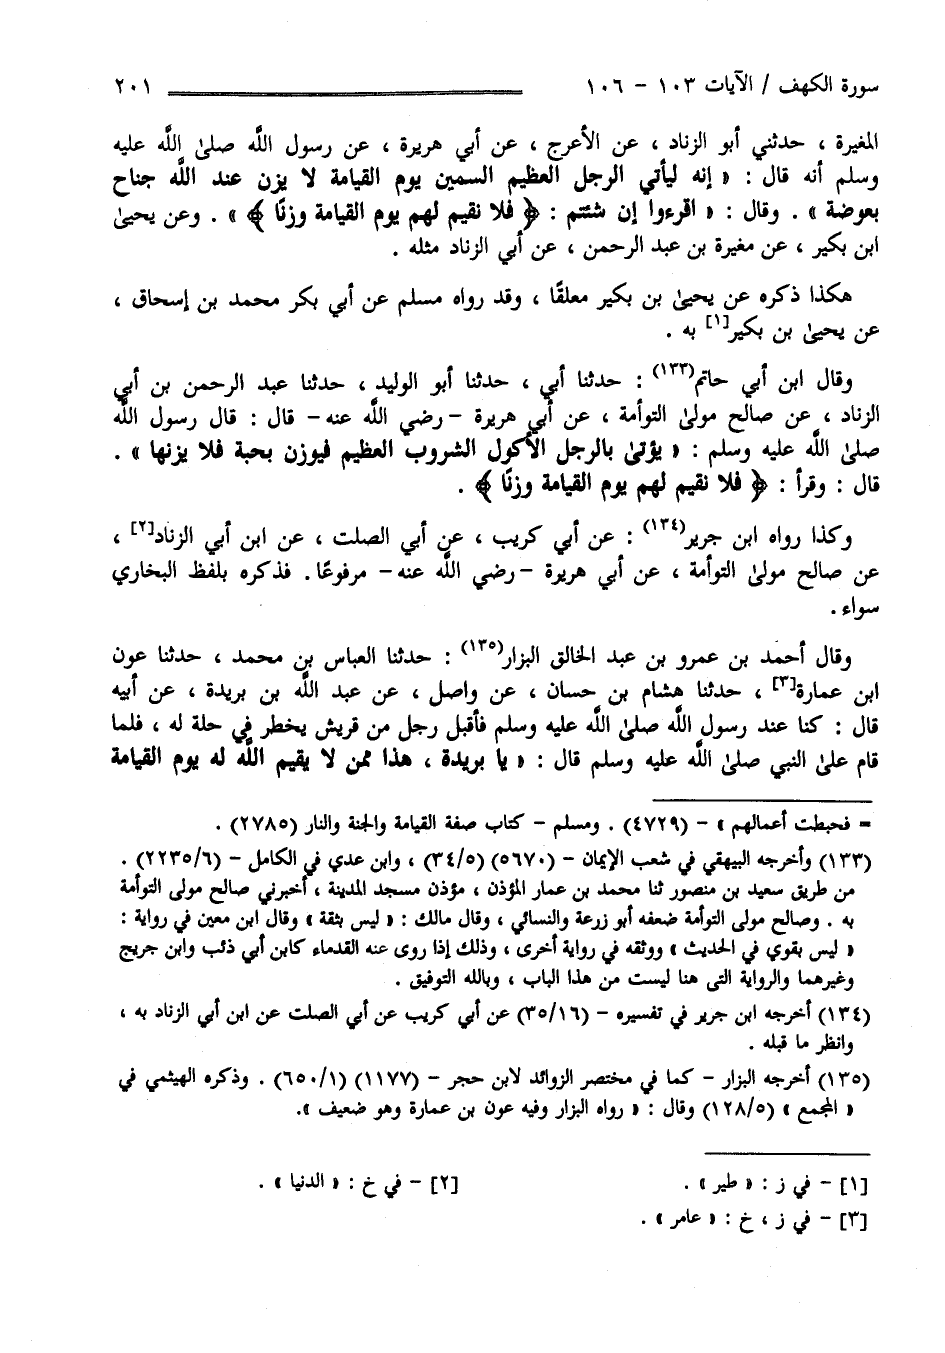 سورة الكهف / الآيات ١٠٣ - ١٠٦ ٢٠١
المغيرة ، حدثني أبو الزناد ، عن الأعرج ، عن أبي هريرة ، عن رسول اللَّه صلىٰ اللَّه عليه
وسلم أنه قال : « إنه ليأتي الرجل العظيم السمين يوم القيامة لا يزن عند اللَّه جناح
بعوضة » . وقال : « اقرءوا إن شئتم : ﴿ فلا نقيم لهم يوم القيامة وزنًا ﴾ » . وعن يحيىٰ
ابن بكير ، عن مغيرة بن عبد الرحمن ، عن أبي الزناد مثله .
هكذا ذكره عن يحيىٰ بن بكير معلقًا ، وقد رواه مسلم عن أبي بكر محمد بن إسحاق ،
عن يحيىٰ بن بكير[١] به .
وقال ابن أبي حاتم(١٣٣) : حدثنا أبي ، حدثنا أبو الوليد ، حدثنا عبد الرحمن بن أبي
الزناد ، عن صالح مولىٰ التوأمة ، عن أبي هريرة -رضي اللَّه عنه- قال : قال رسول اللَّه
صلىٰ اللَّه عليه وسلم : « يؤتىٰ بالرجل الأكول الشروب العظيم فيوزن بحبة فلا يزنها » .
قال : وقرأ : ﴿ فلا نقيم لهم يوم القيامة وزنًا ﴾ .
وكذا رواه ابن جرير(١٣٤) : عن أبي كريب ، عن أبي الصلت ، عن ابن أبي الزناد[٢] ،
عن صالح مولىٰ التوأمة ، عن أبي هريرة -رضي اللَّه عنه- مرفوعًا. فذكره بلفظ البخاري
سواء.
وقال أحمد بن عمرو بن عبد الخالق البزار(١٣٥) : حدثنا العباس بن محمد ، حدثنا عون
ابن عمارة[٣] ، حدثنا هشام بن حسان ، عن واصل ، عن عبد اللَّه بن بريدة ، عن أبيه
قال : كنا عند رسول اللَّه صلىٰ اللَّه عليه وسلم فأقبل رجل من قريش يخطر في حلة له ، فلما
قام علىٰ النبي صلىٰ اللَّه عليه وسلم قال : « يا بريدة ، هذا ممن لا يقيم اللَّه له يوم القيامة
= فحبطت أعمالهم » - (٤٧٢٩) . ومسلم - كتاب صفة القيامة والجنة والنار (٢٧٨٥) .
(١٣٣) وأخرجه البيهقي في شعب الإيمان - (٥٦٧٠) (٣٤/٥) ، وابن عدي في الكامل - (٢٢٣٥/٦) .
من طريق سعيد بن منصور ثنا محمد بن عمار المؤذن ، مؤذن مسجد المدينة ، أخبرني صالح مولى التوأمة
به . وصالح مولى التوأمة ضعفه أبو زرعة والنسائي ، وقال مالك : « ليس بثقة » وقال ابن معين في رواية :
« ليس بقوي في الحديث » ووثقه في رواية أخرى ، وذلك إذا روى عنه القدماء كابن أبي ذئب وابن جريج
وغيرهما والرواية التى هنا ليست من هذا الباب ، وبالله التوفيق .
(١٣٤) أخرجه ابن جرير في تفسيره - (٣٥/١٦) عن أبي كريب عن أبي الصلت عن ابن أبي الزناد به ،
وانظر ما قبله .
(١٣٥) أخرجه البزار - كما في مختصر الزوائد لابن حجر - (١١٧٧) (٦٥٠/١) . وذكره الهيثمي في
« المجمع » (١٢٨/٥) وقال : « رواه البزار وفيه عون بن عمارة وهو ضعيف ».
[١] - في ز : « طير » . [٢] - في خ : « الدنيا » .
[٣] - في ز ، خ : « عامر » .